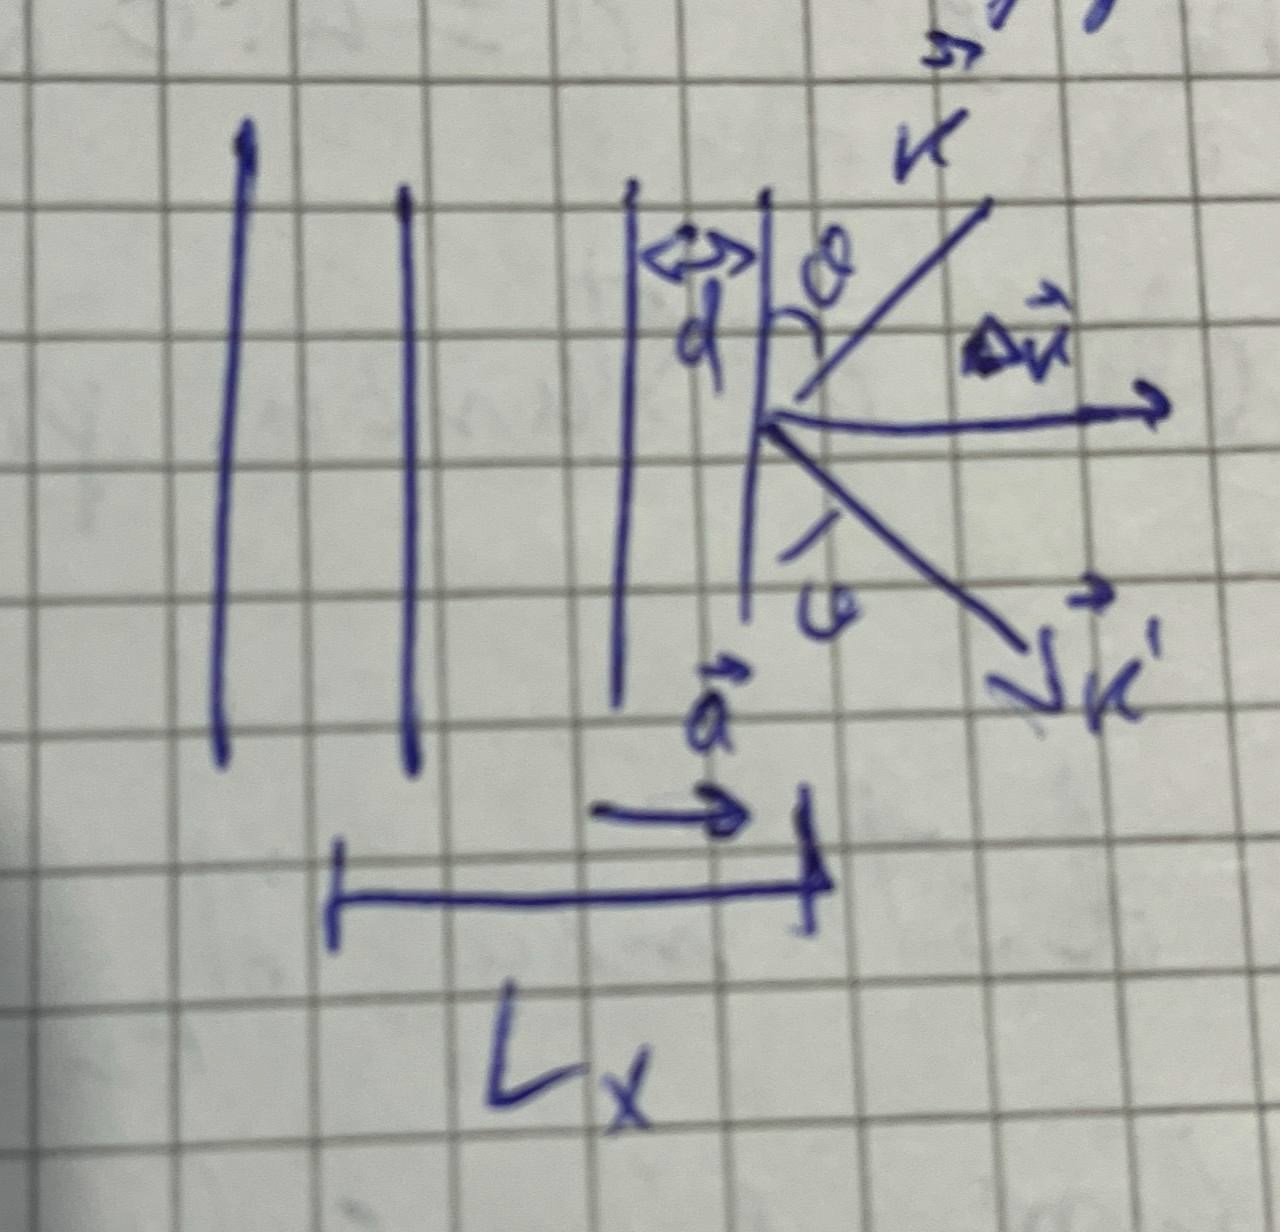 k⃗
θ
d
Δk⃗
θ
k⃗'
a⃗
Lx